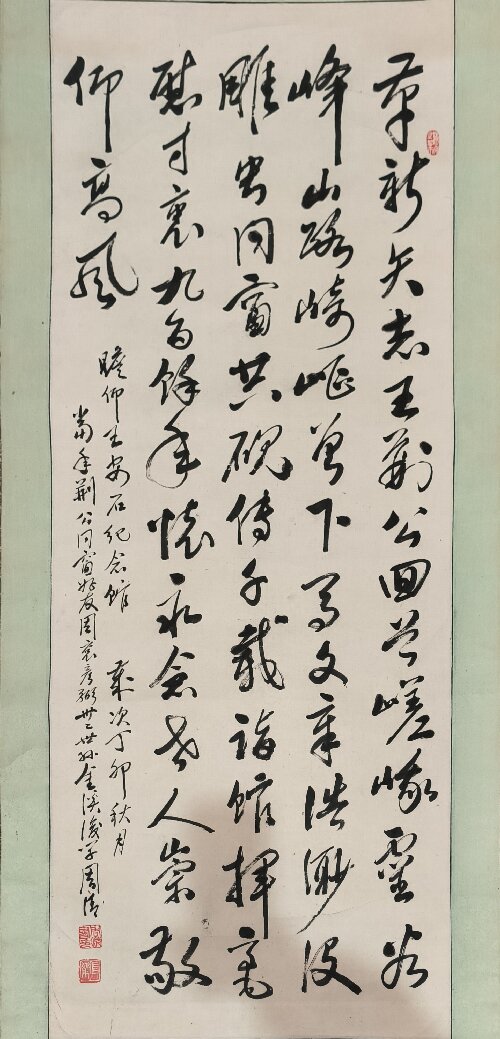 革新矢志王荆公回首嵯峨靈谷
峰山路崎岖曾下马文章浩渺没
雕虫同窗共砚传千载诣馆挥毫
慰寸衷九百馀年怀永念世人崇敬
仰高风
瞻仰王安石纪念馆 岁次丁卯秋月
当年荆公同窗好友周衮彦弼卅二世孙金溪後学周